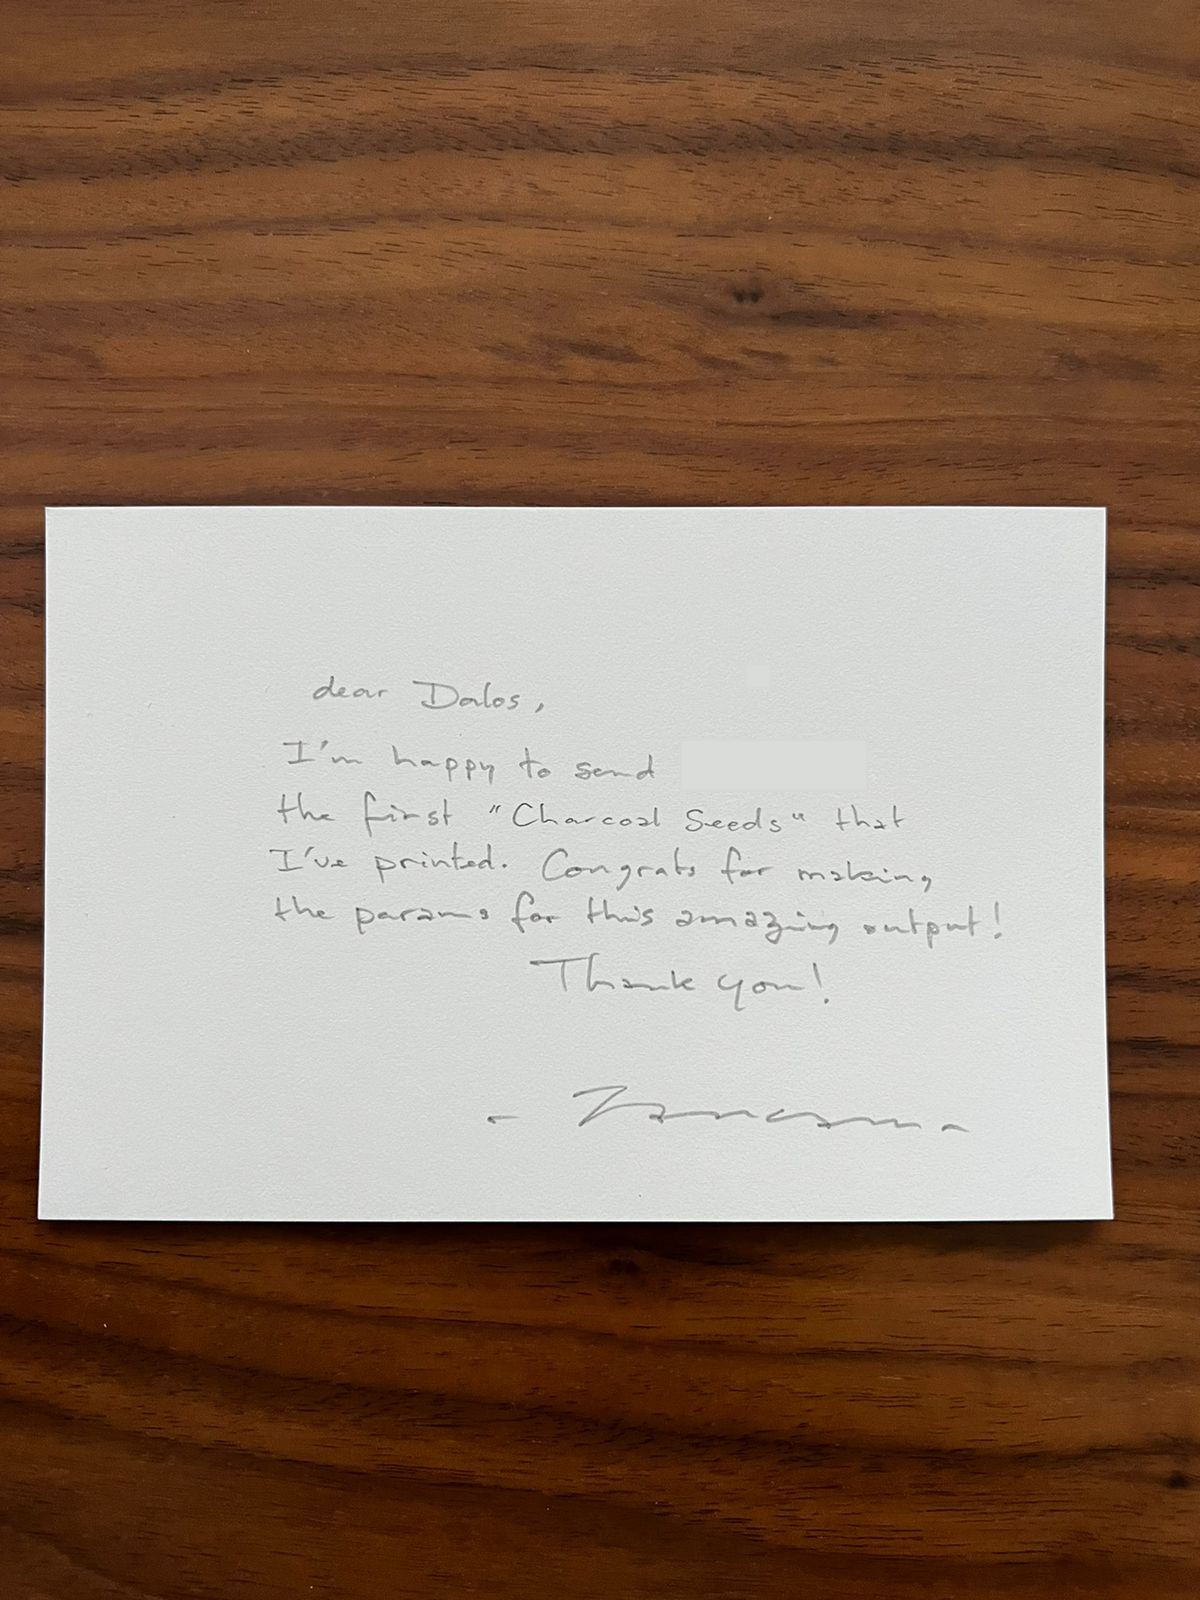 dear Dalos,
I'm happy to send
the first "Charcoal Seeds" that
I've printed. Congrats for making
the params for this amazing output!
Thank you!